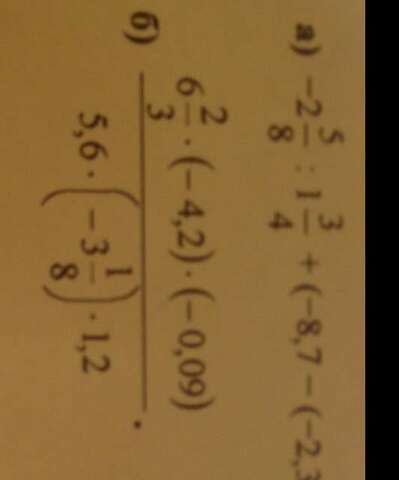 а) −2 5/8 : 1 3/4 + (−8,7 − (−2,3
б) 6 2/3 · (−4,2) · (−0,09)
5,6 · (−3 1/8) · 1,2 .